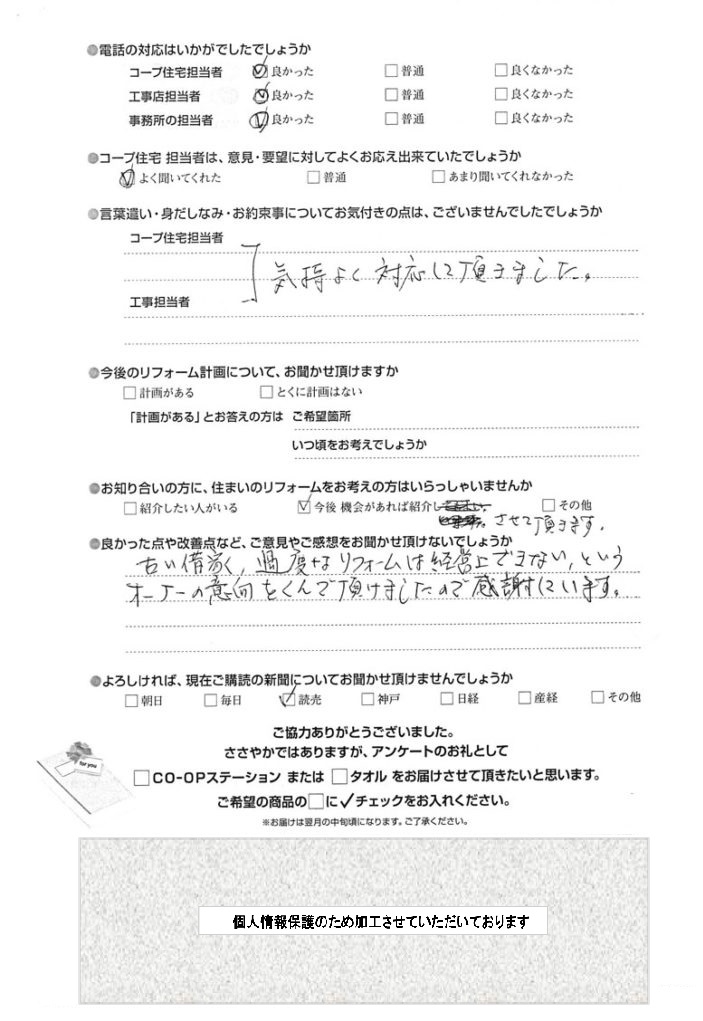 ●電話の対応はいかがでしたでしょうか
コープ住宅担当者 ☑良かった □普通 □良くなかった
工事店担当者 ☑良かった □普通 □良くなかった
事務所の担当者 ☑良かった □普通 □良くなかった
●コープ住宅 担当者は、意見・要望に対してよくお応え出来ていたでしょうか
☑よく聞いてくれた □普通 □あまり聞いてくれなかった
●言葉遣い・身だしなみ・お約束事についてお気付きの点は、ございませんでしたでしょうか
コープ住宅担当者
気持よく対応して頂きました。
工事担当者
●今後のリフォーム計画について、お聞かせ頂けますか
□計画がある □とくに計画はない
「計画がある」とお答えの方は ご希望箇所
いつ頃をお考えでしょうか
●お知り合いの方に、住まいのリフォームをお考えの方はいらっしゃいませんか
□紹介したい人がいる ☑今後 機会があれば紹介し □その他
させて頂きます。
●良かった点や改善点など、ご意見やご感想をお聞かせ頂けないでしょうか
古い借家で、過度なリフォームは経営上できない、という
オーナーの意向をくんで頂けましたので感謝しています。
●よろしければ、現在ご購読の新聞についてお聞かせ頂けませんでしょうか
□朝日 □毎日 ☑読売 □神戸 □日経 □産経 □その他
ご協力ありがとうございました。
ささやかではありますが、アンケートのお礼として
for you
□CO-OPステーション または □タオル をお届けさせて頂きたいと思います。
ご希望の商品の□に✓チェックをお入れください。
※お届けは翌月の中旬頃になります。ご了承ください。
個人情報保護のため加工させていただいております